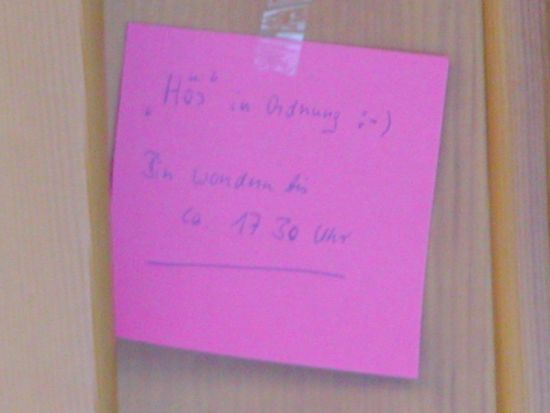 „Hüs" in Ordnung :-)
Bin wandern bis
ca. 17 30 Uhr